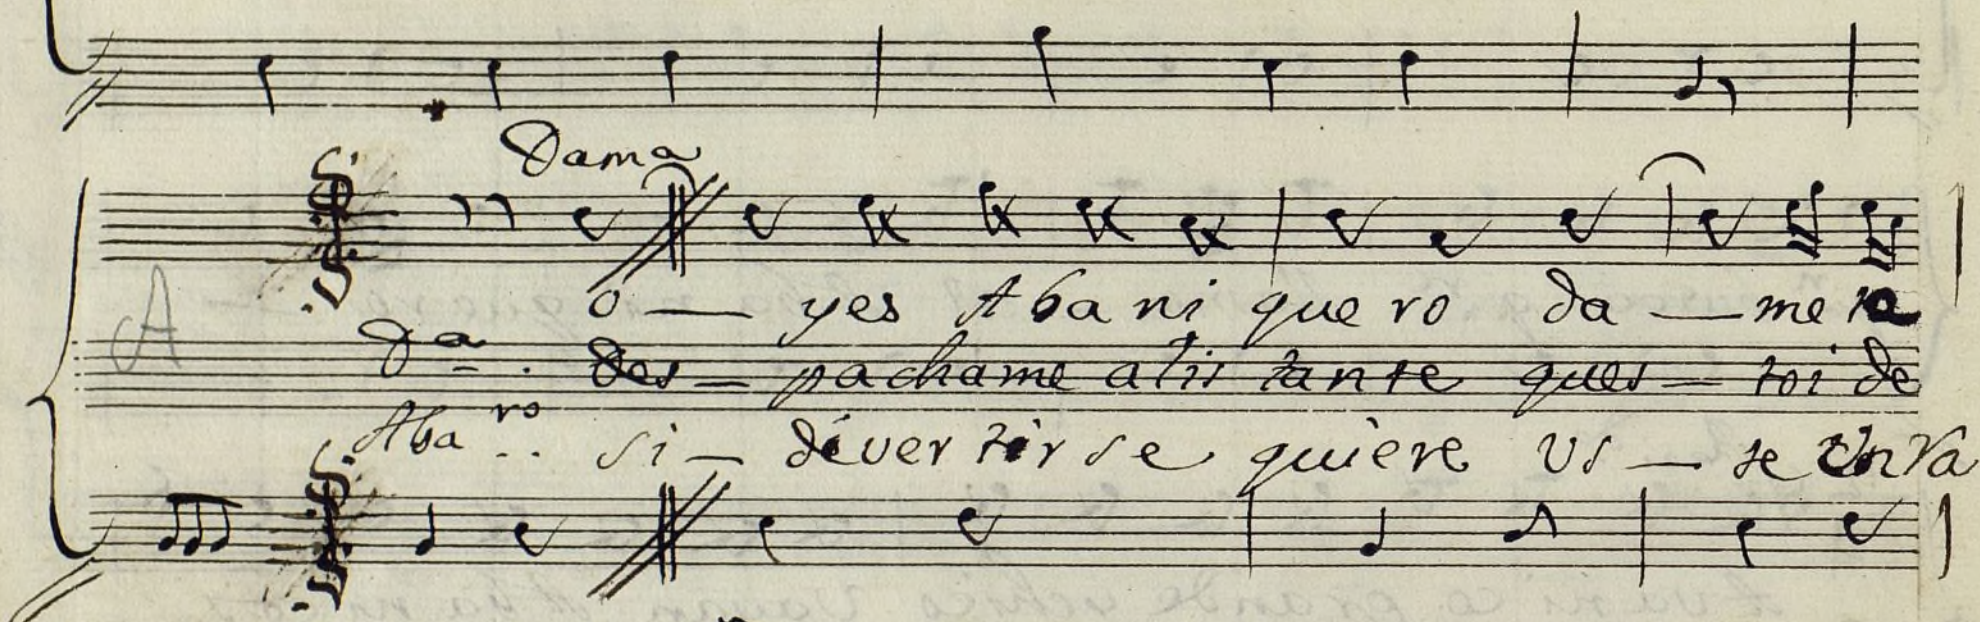 Dama
A
o — yes Abaniquero da — me
Da. Des — pachame alistante ques — toi de
Abaro.. si — divertirse quiere Us — te Un Ra